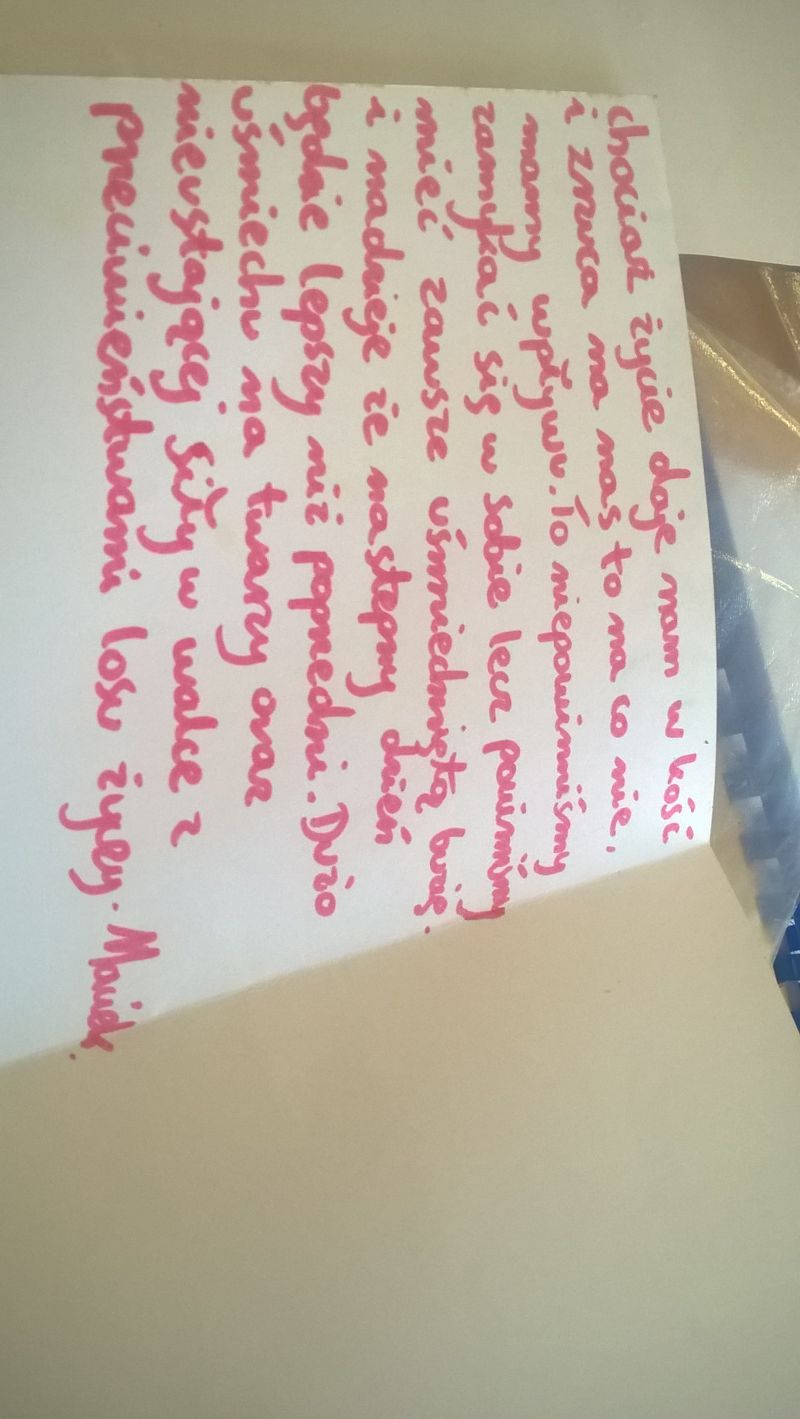 chociaż życie daje nam w kość
i zrzuca na nas to na co nie,
mamy wpływu. To niepowinniśmy
zamykać się w sobie lecz powinniśmy
mieć zawsze uśmiechniętą buzię.
i nadzieje że nastepny dzień
będzie lepszy niż poprzedni. Dużo
uśmiechu na twarzy oraz
nieustającej siły w walce z
przeciwieństwami losu życzy. Maniek.